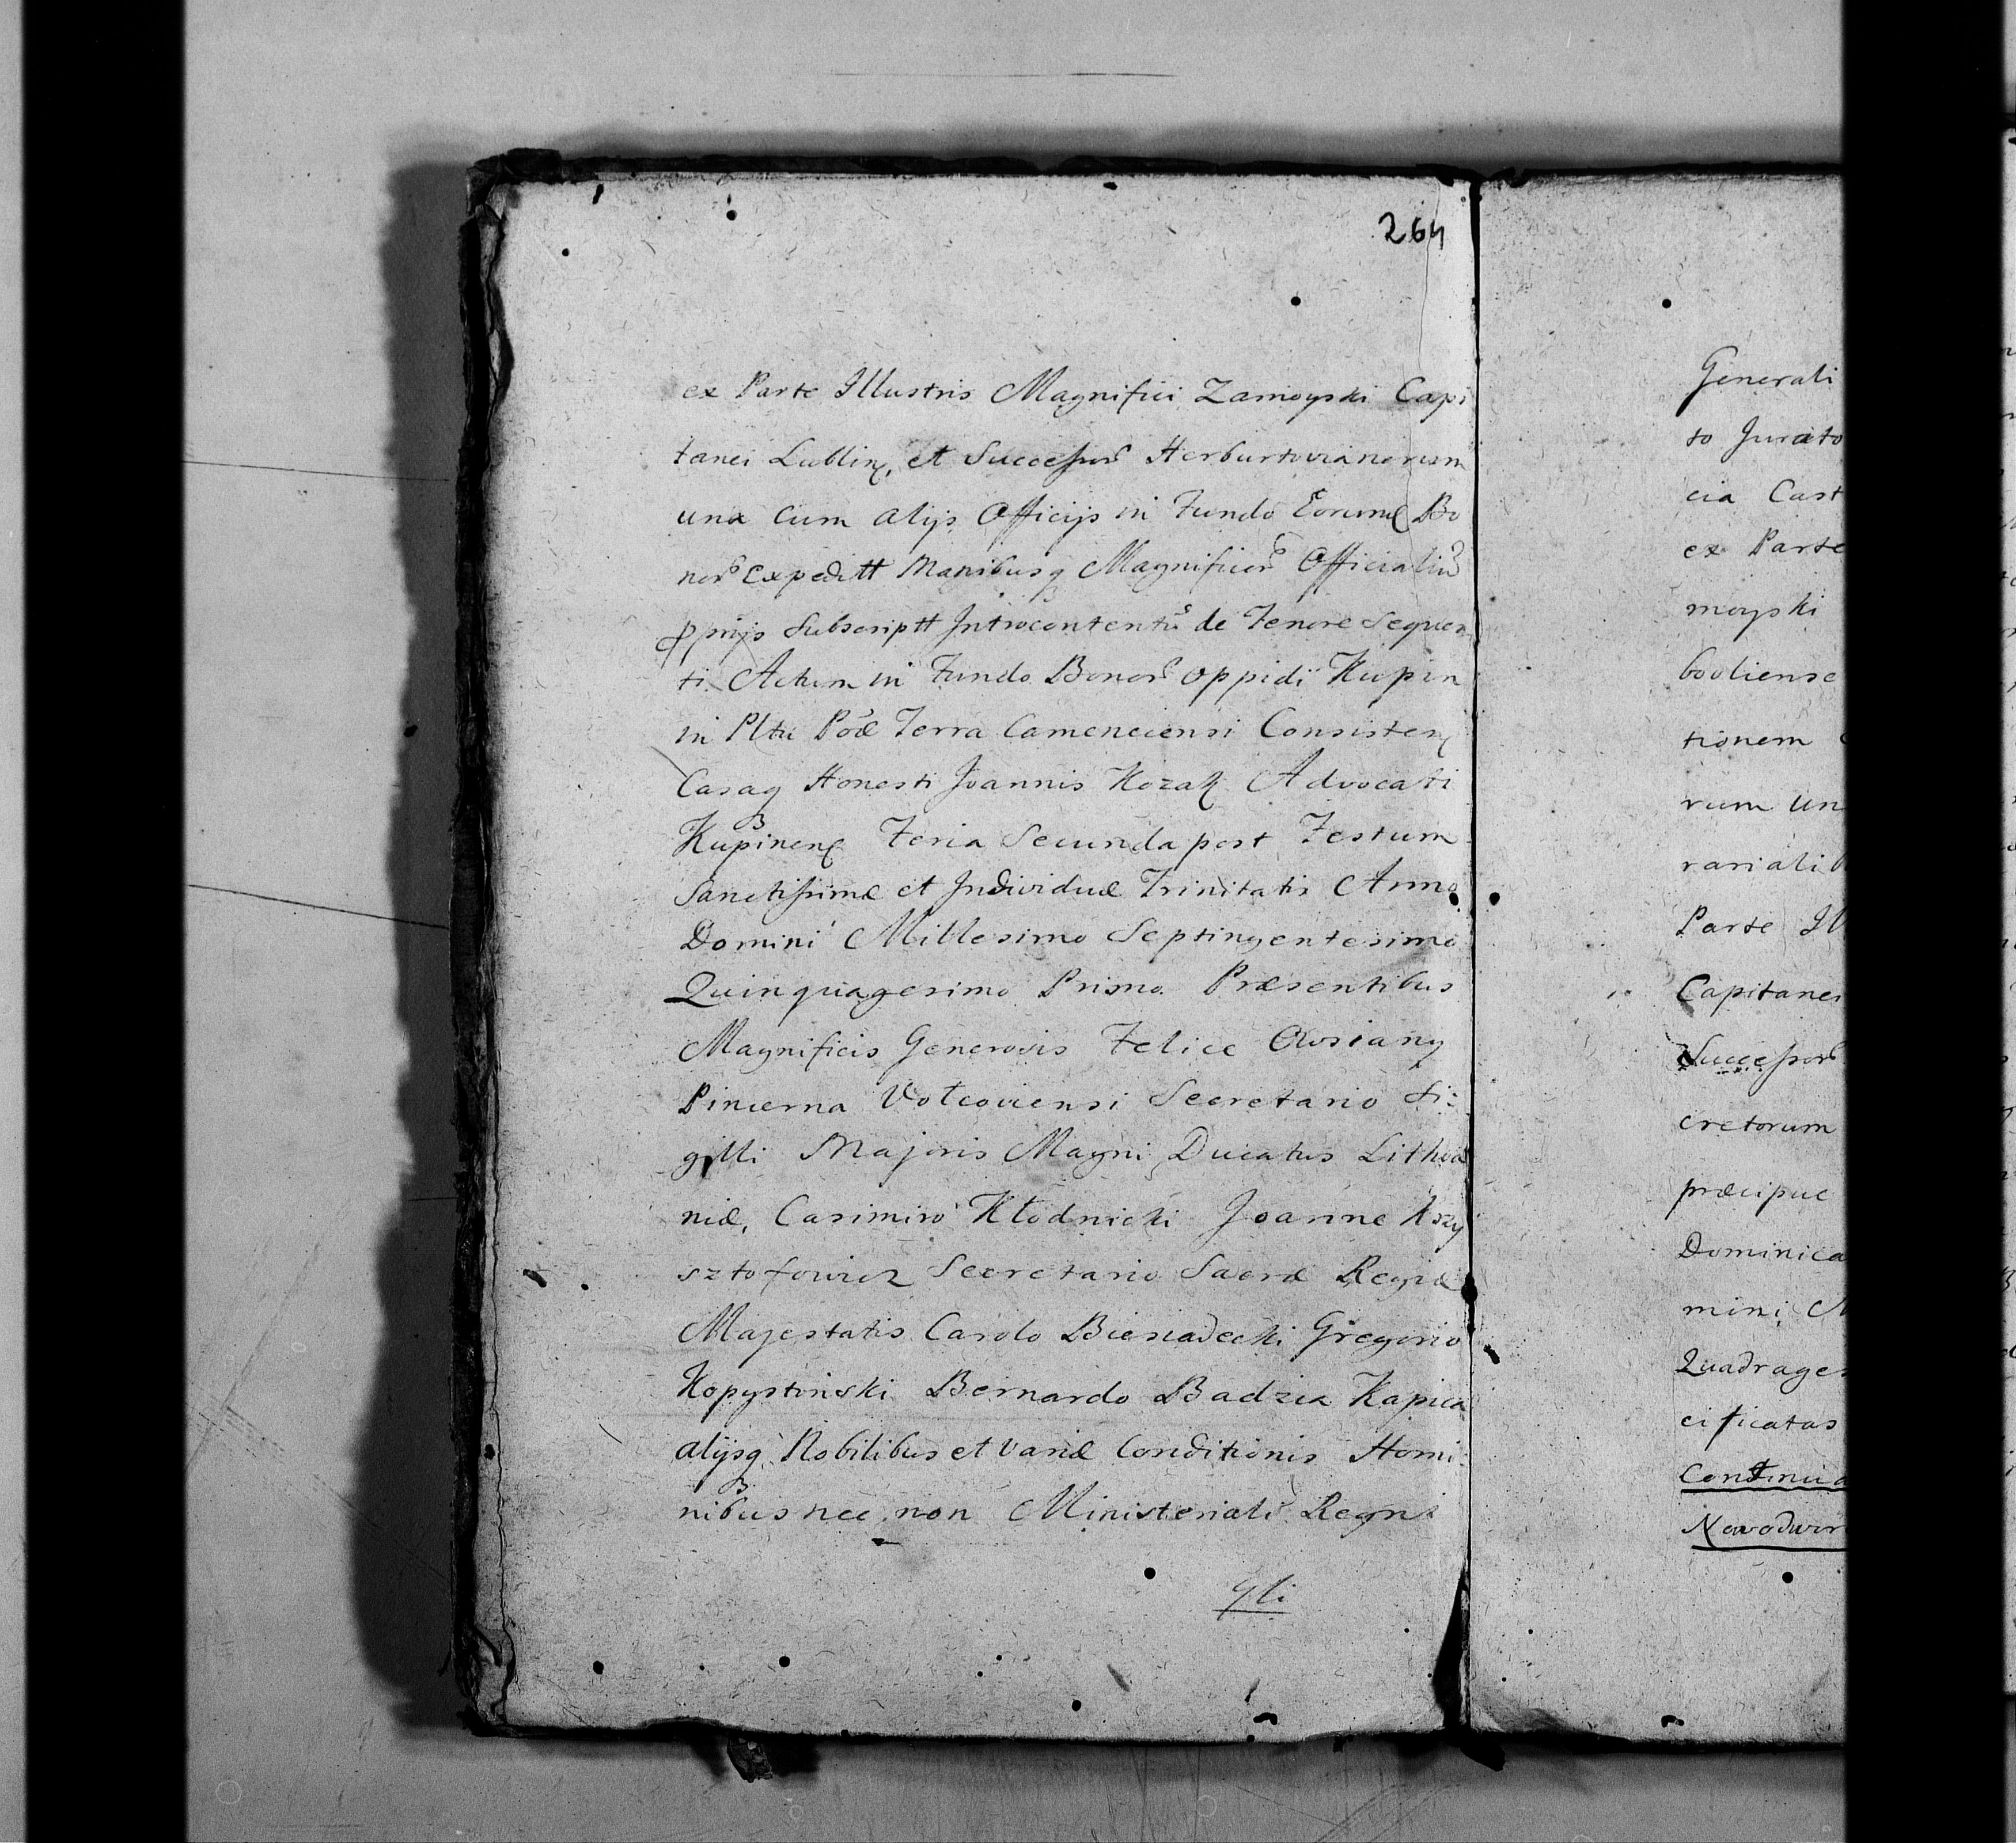 264
ex Parte Illustris Magnifici Zamoyski Capi
tanei Lublin, et Successor Herburtovianorum
una cum alijs Officijs in Fundo Eorund Bo
nor Expeditt Manibusq Magnificor Officialiu
pprijs Subscriptt Introcontentu de Tenore Sequen
ti. Actum in Fundo Bonor Oppidi Kupin
in Pltu Poæ Terra Camenecensi Consisten
Casaq Honesti Joannis Kozak Advocati
Kupinen Feria Secunda post Festum
Sanctissimæ et Individuæ Trinitatis Anno
Domini Millesimo Septingentesimo
Quinquagesimo Primo. Præsentibus
Magnificis Generosis Felice
Pincerna Secretario Si:
gilli Majoris Magni Ducatus Lithva
niæ, Casimiro Kłodnicki Joanne Krzy
sztofowicz Secretario Sacræ Regiæ
Majestatis Carolo Biesiadecki Gregorio
Kopystynski Bernardo Badzia Kapica
alijsq Nobilibus et variæ Conditionis Homi:
nibus nec non Ministeriali Regni
Gli
Generali
to Jurato
cia Cast
ex Parte
moyski
booliense
tionem
rum un
rarialib
Parte Il
Capitanei
Successor
cretorum
præcipue
Dominica
mini M
Quadrages
cificatas
Continua
Nowodwor